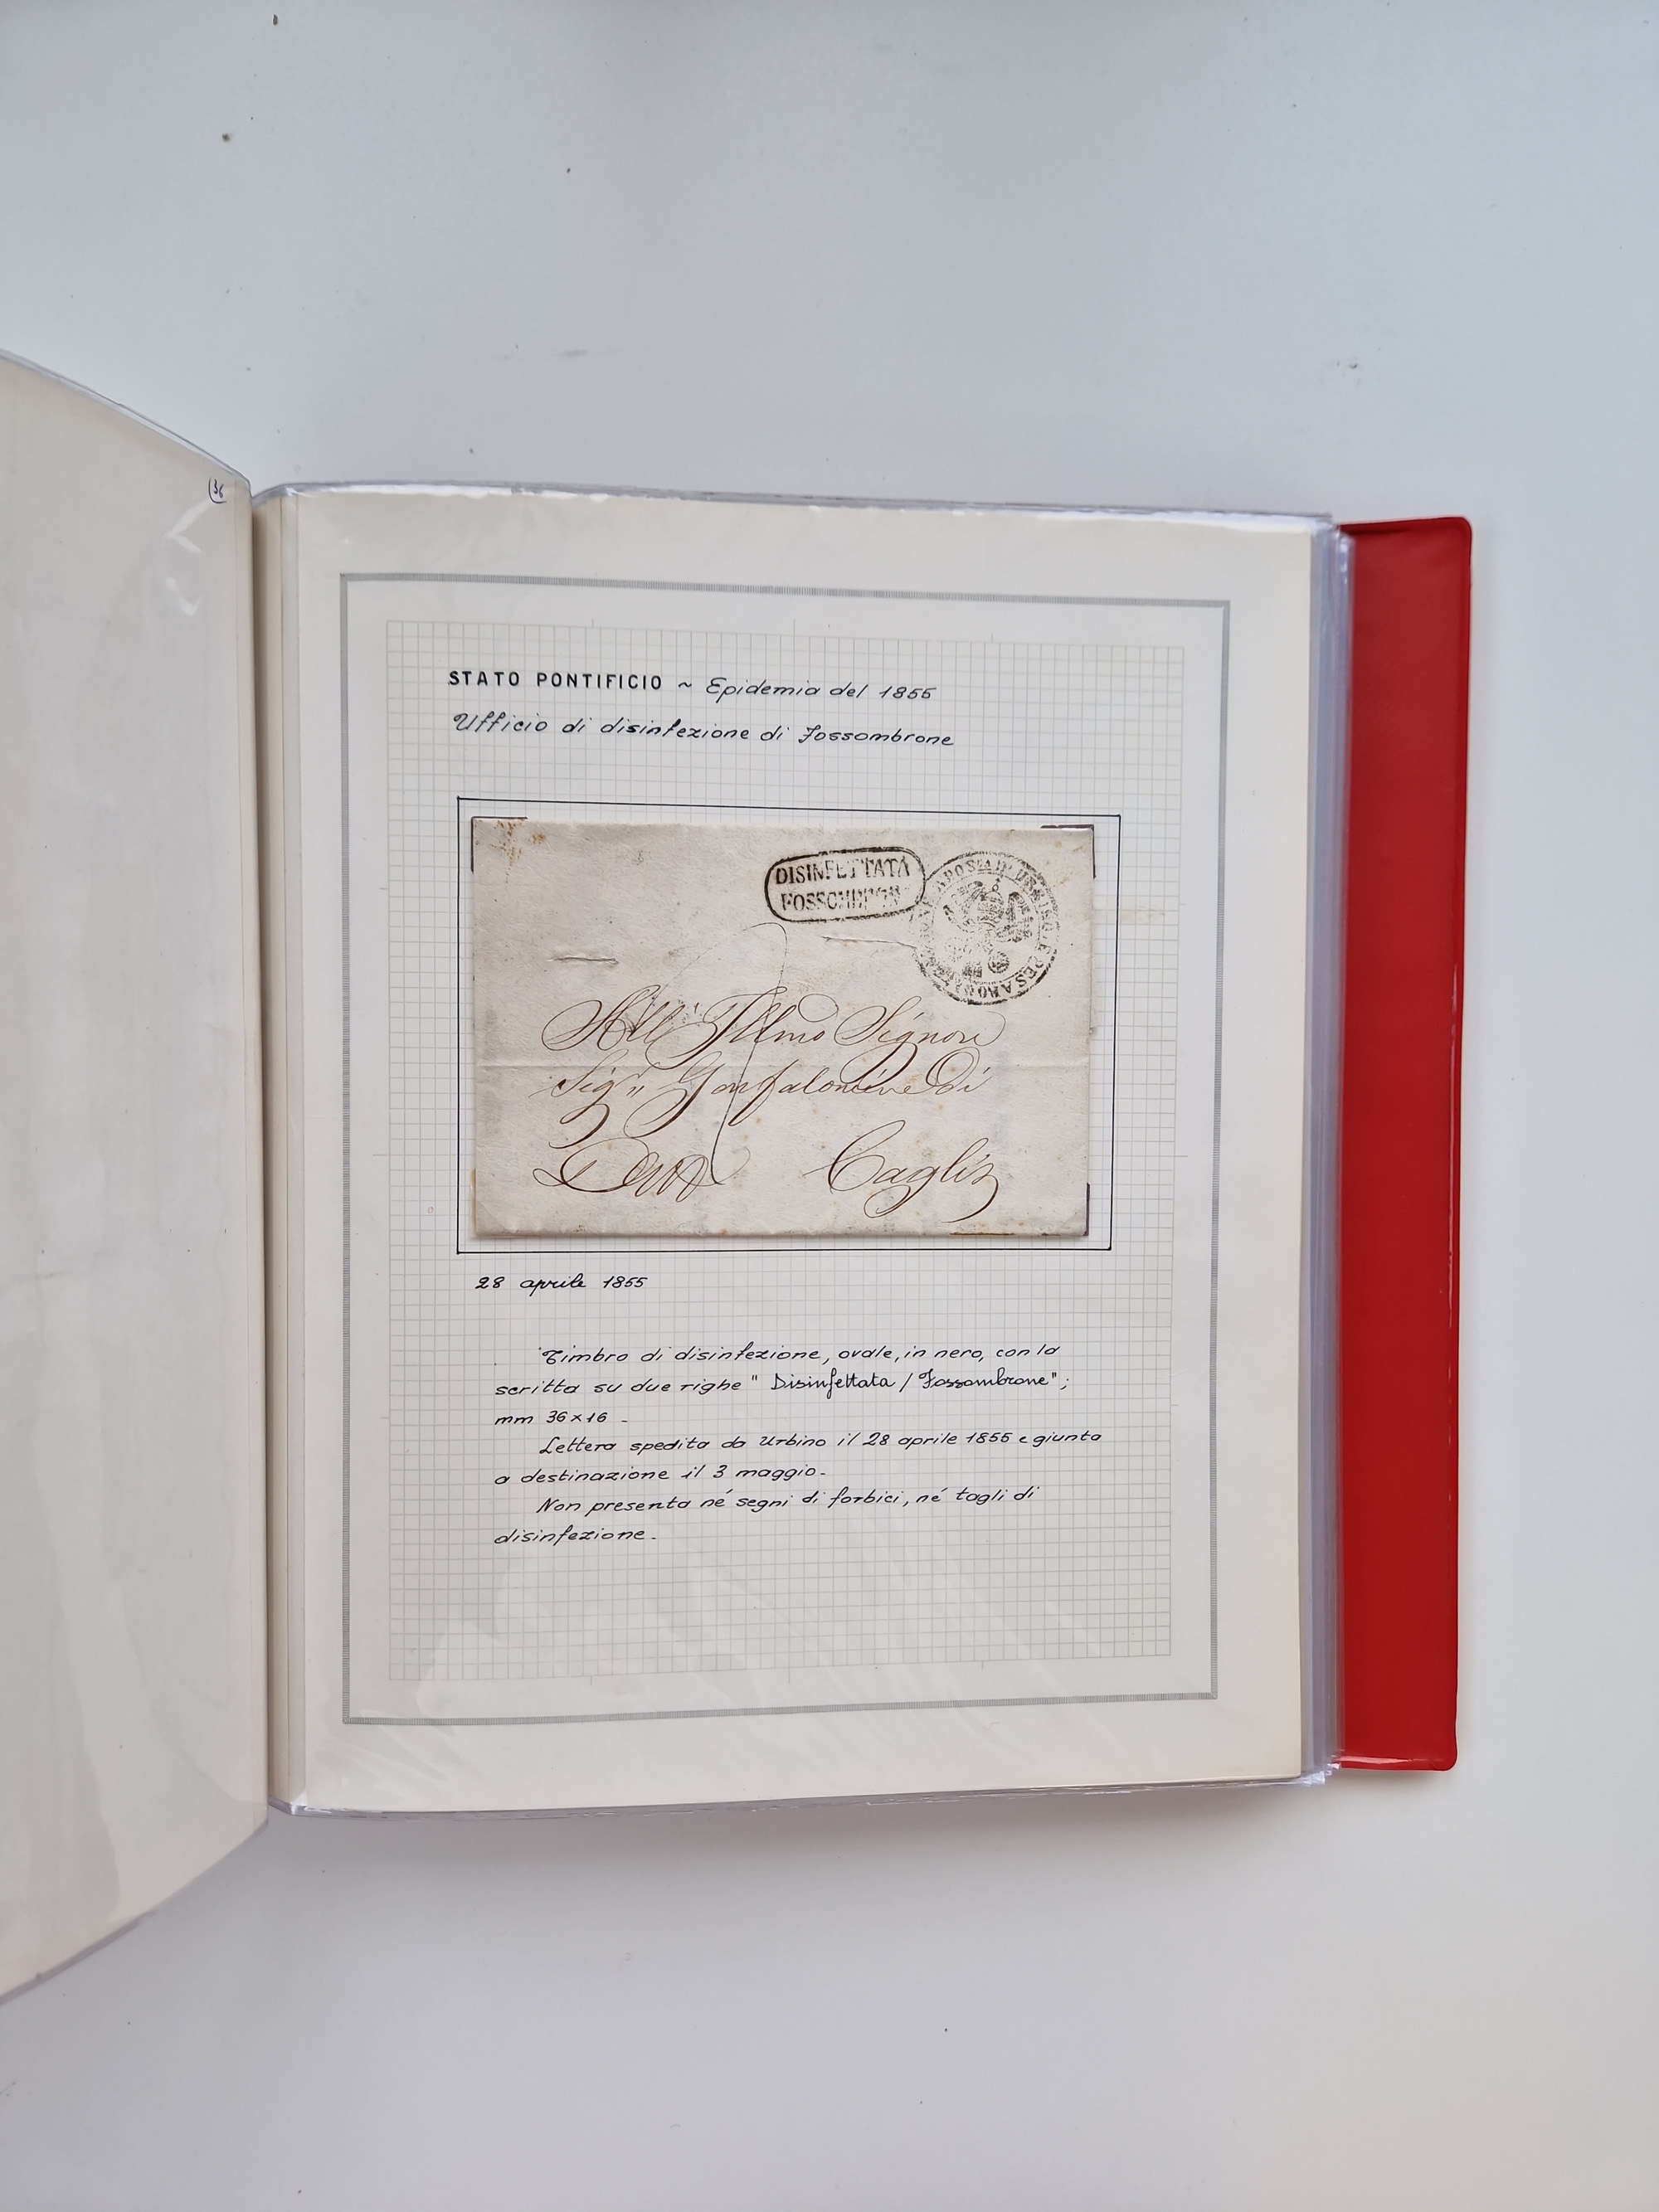 36
STATO PONTIFICIO ~ Epidemia del 1855
Ufficio di disinfezione di Fossombrone
DISINFETTATA
FOSSOMBRONE
APOST. DI URBINO E PESARO
All' Illmo Signore
Sigr Gonfaloniere Di
Cagli
28 aprile 1855
Timbro di disinfezione, ovale, in nero, con la
scritta su due righe " Disinfettata / Fossombrone";
mm 36×16 -
Lettera spedita da Urbino il 28 aprile 1855 e giunta
a destinazione il 3 maggio -
Non presenta né segni di forbici, né tagli di
disinfezione -